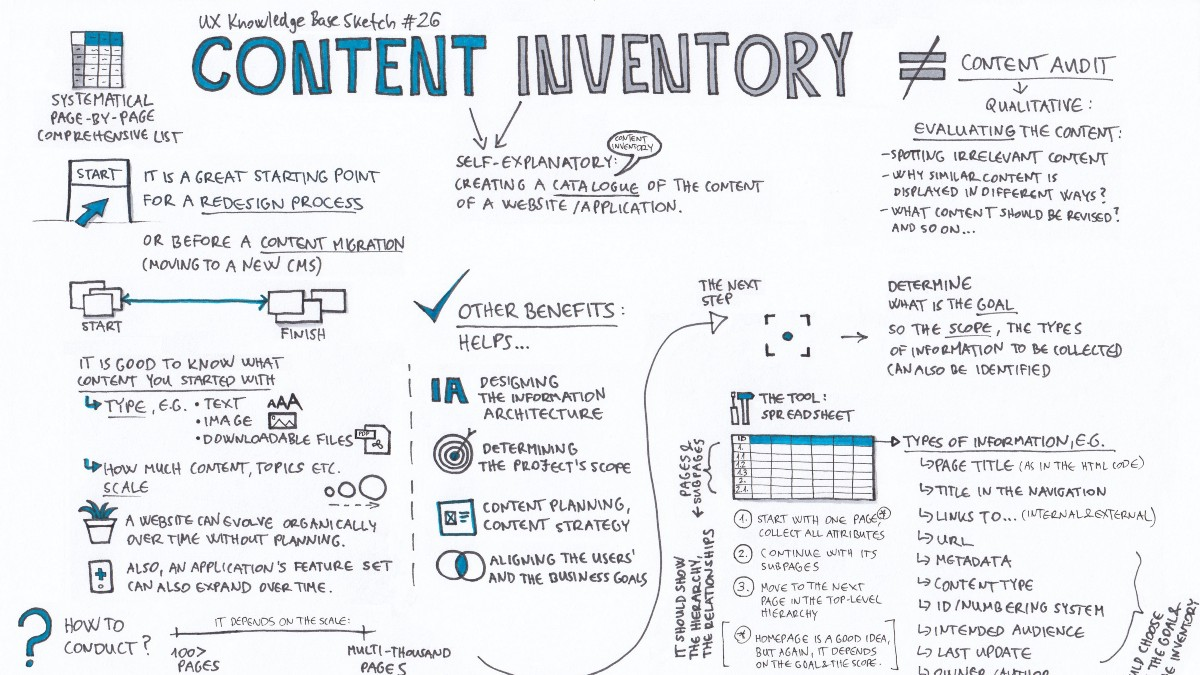 UX Knowledge Base Sketch #26
CONTENT INVENTORY
SYSTEMATICAL
PAGE-BY-PAGE
COMPREHENSIVE LIST
START
IT IS A GREAT STARTING POINT
FOR A REDESIGN PROCESS
OR BEFORE A CONTENT MIGRATION
(MOVING TO A NEW CMS)
START
FINISH
IT IS GOOD TO KNOW WHAT
CONTENT YOU STARTED WITH
TYPE, E.G. • TEXT
AAA
• IMAGE
• DOWNLOADABLE FILES
PDF
HOW MUCH CONTENT, TOPICS ETC.
SCALE
A WEBSITE CAN EVOLVE ORGANICALLY
OVER TIME WITHOUT PLANNING.
ALSO, AN APPLICATION'S FEATURE SET
CAN ALSO EXPAND OVER TIME.
? HOW TO
CONDUCT?
IT DEPENDS ON THE SCALE:
100>
PAGES
MULTI-THOUSAND
PAGES
CONTENT
INVENTORY
SELF-EXPLANATORY:
CREATING A CATALOGUE OF THE CONTENT
OF A WEBSITE/APPLICATION.
OTHER BENEFITS:
HELPS...
IA
DESIGNING
THE INFORMATION
ARCHITECTURE
DETERMINING
THE PROJECT'S SCOPE
CONTENT PLANNING,
CONTENT STRATEGY
ALIGNING THE USERS'
AND THE BUSINESS GOALS
≠ CONTENT AUDIT
QUALITATIVE:
EVALUATING THE CONTENT:
- SPOTTING IRRELEVANT CONTENT
- WHY SIMILAR CONTENT IS
DISPLAYED IN DIFFERENT WAYS?
- WHAT CONTENT SHOULD BE REVISED?
AND SO ON...
THE NEXT
STEP
DETERMINE
WHAT IS THE GOAL
SO THE SCOPE, THE TYPES
OF INFORMATION TO BE COLLECTED
CAN ALSO BE IDENTIFIED
THE TOOL:
SPREADSHEET
ID
1.
1.1
1.2
1.3
2.
2.1.
PAGES &
SUBPAGES
IT SHOULD SHOW
THE HIERARCHY,
THE RELATIONSHIPS
1. START WITH ONE PAGE,*
COLLECT ALL ATTRIBUTES
2. CONTINUE WITH ITS
SUBPAGES
3. MOVE TO THE NEXT
PAGE IN THE TOP-LEVEL
HIERARCHY
* HOMEPAGE IS A GOOD IDEA,
BUT AGAIN, IT DEPENDS
ON THE GOAL & THE SCOPE.
TYPES OF INFORMATION, E.G.
PAGE TITLE (AS IN THE HTML CODE)
TITLE IN THE NAVIGATION
LINKS TO... (INTERNAL & EXTERNAL)
URL
METADATA
CONTENT TYPE
ID/NUMBERING SYSTEM
INTENDED AUDIENCE
LAST UPDATE
OWNER/AUTHOR
CHOOSE
THE GOAL &
INVENTORY